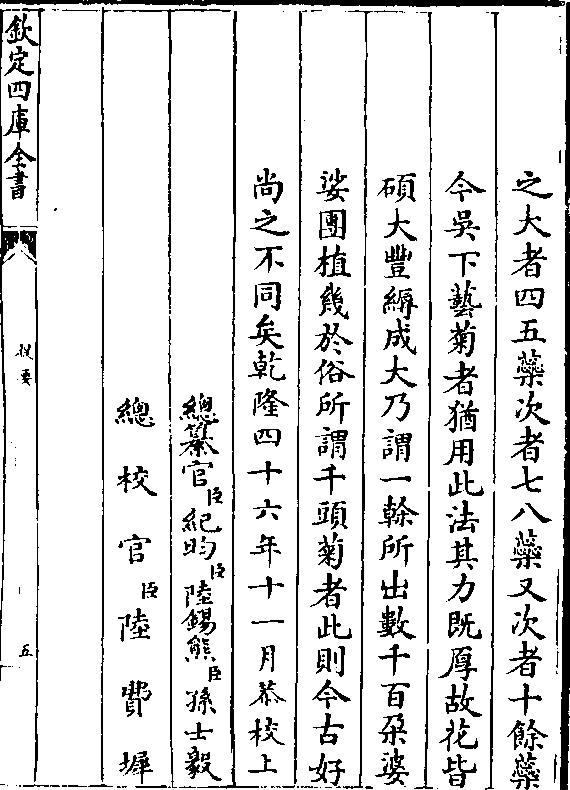 之大者四五蘂次者七八蘂又次者十餘蘂
今吳下藝菊者猶用此法其力既厚故花皆
碩大豐縟成大乃謂一榦所出數千百朶婆
娑團植幾於俗所謂千頭菊者此則今古好
尚之不同矣乾隆四十六年十一月恭校上
總纂官臣紀昀臣陸錫熊臣孫士毅
總校官臣陸費墀
欽定四庫全書
提要
五